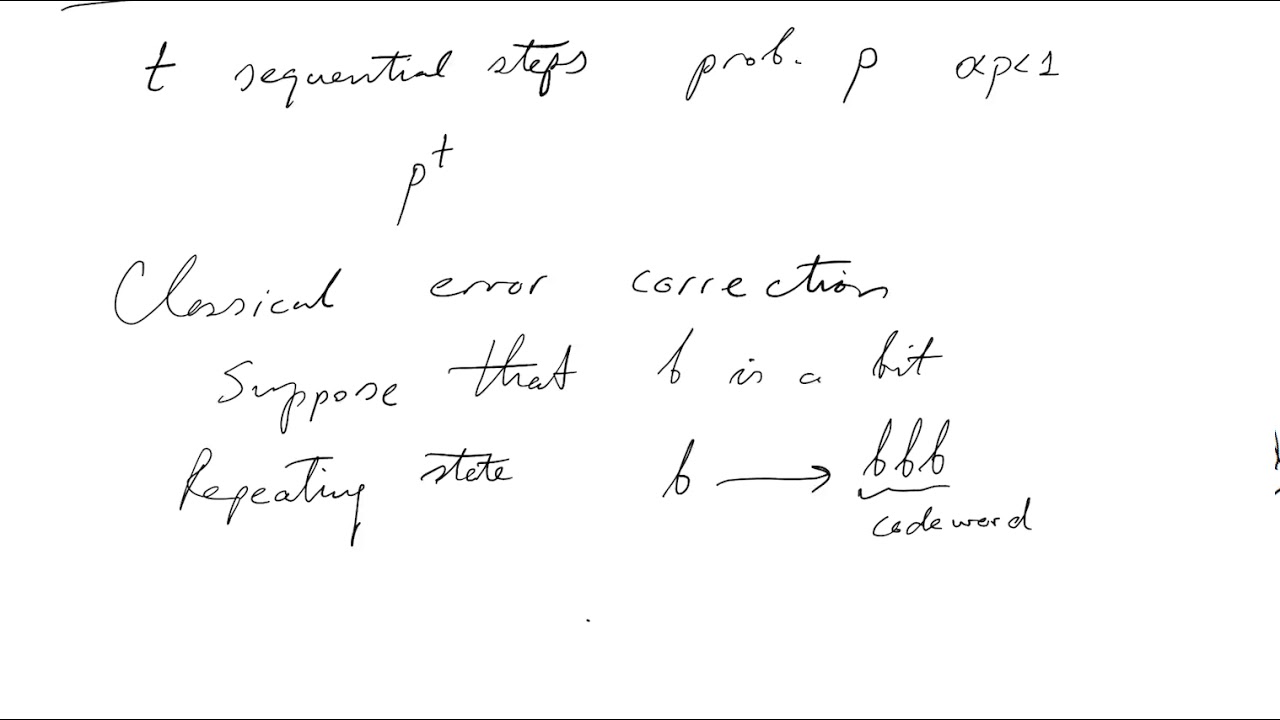 t sequential steps prob. p 0<p<1
p^t
Classical error correction
Suppose that b is a bit
Repeating state b ⟶ bbb
codeword